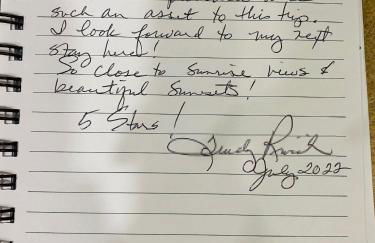 such an asset to this trip.
I look forward to my next
stay here!
So close to sunrise views &
beautiful sunsets!
5 Stars!
July 2022